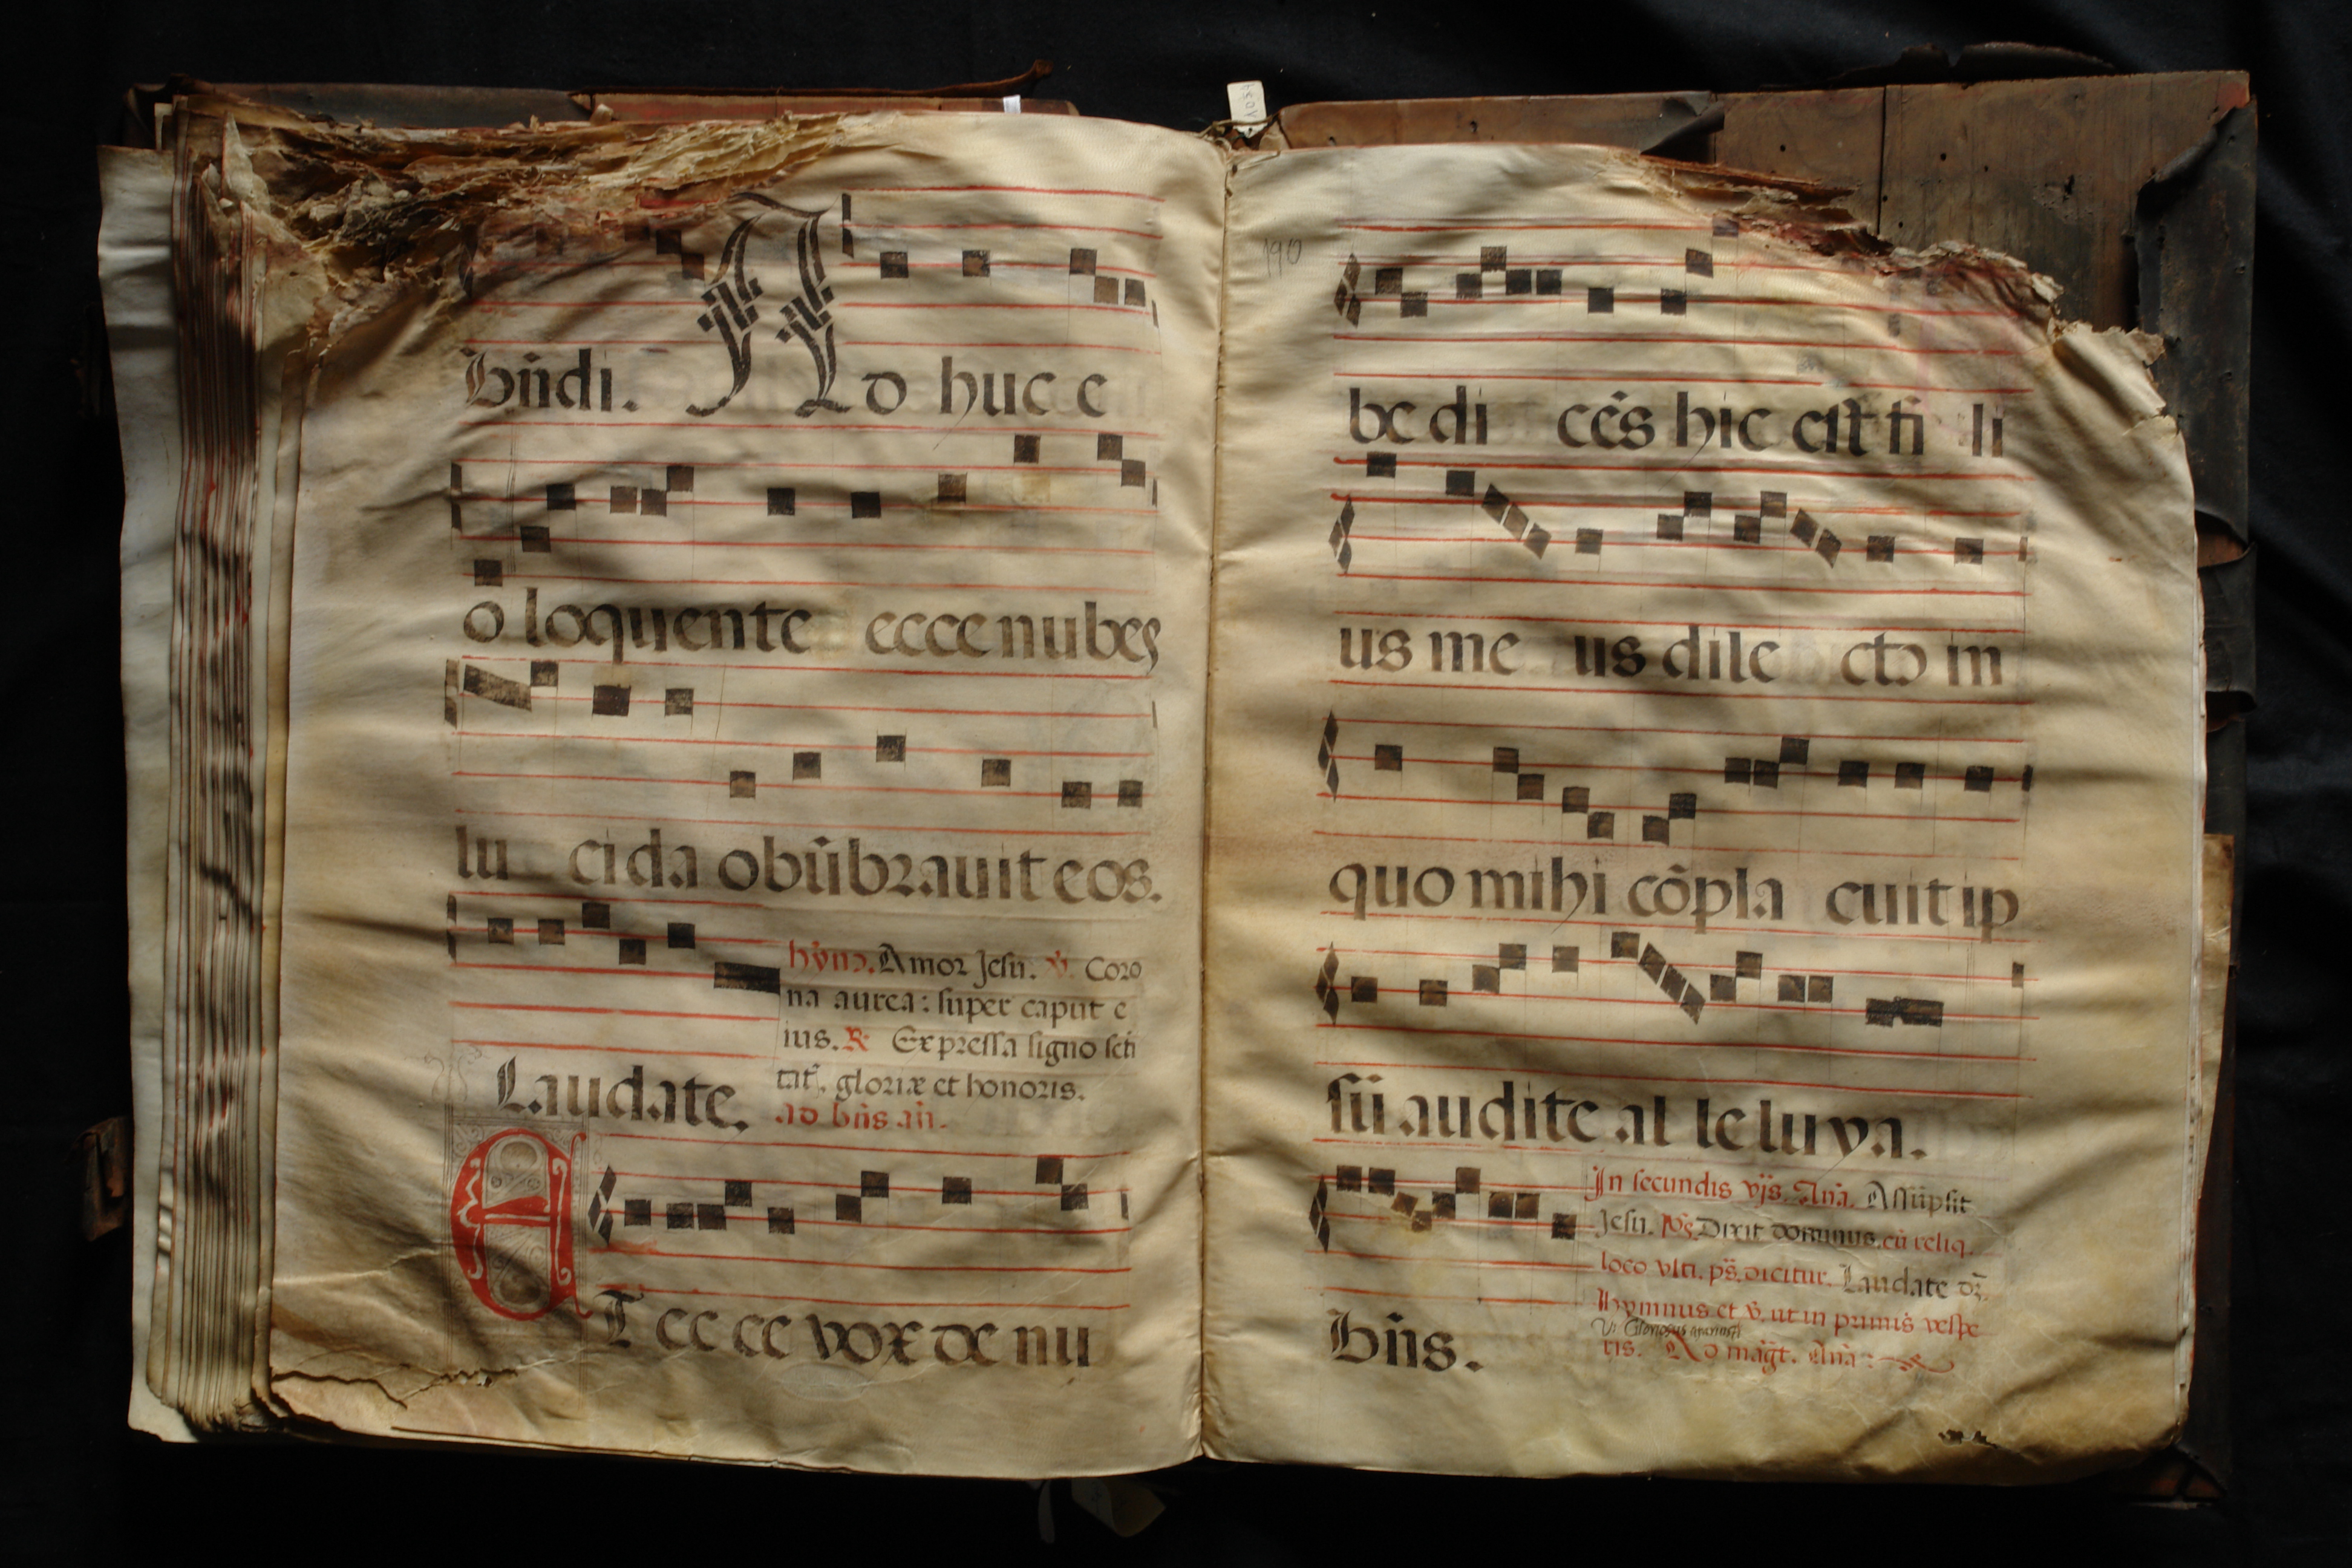 bñdi. Ad huc e
o loquente ecce nubes
lu cida obũbrauit eos.
hỹm̃. Amor Jesu. ℣. Coro
na aurea: super caput e
ius. ℟. Expressa signo scti
tat̃. gloriæ et honoris.
Laudate.
ad bñs añ.
ET ecce vox de nu
190
be di cẽs hic est fi li
us me us dile cto in
quo mihi cõpla cuit ip
sũ audite al le luya.
In secundis vṗs. Añа. Assũpsit
Jesu. ps̃. Dixit dominus. cũ reliq.
loco vlti. ps̃. dicitur. Laudate dñ̃.
Hymnus et ℣. ut in primis vespe
ris. Ad mag̃t. Añа:
Bñs.